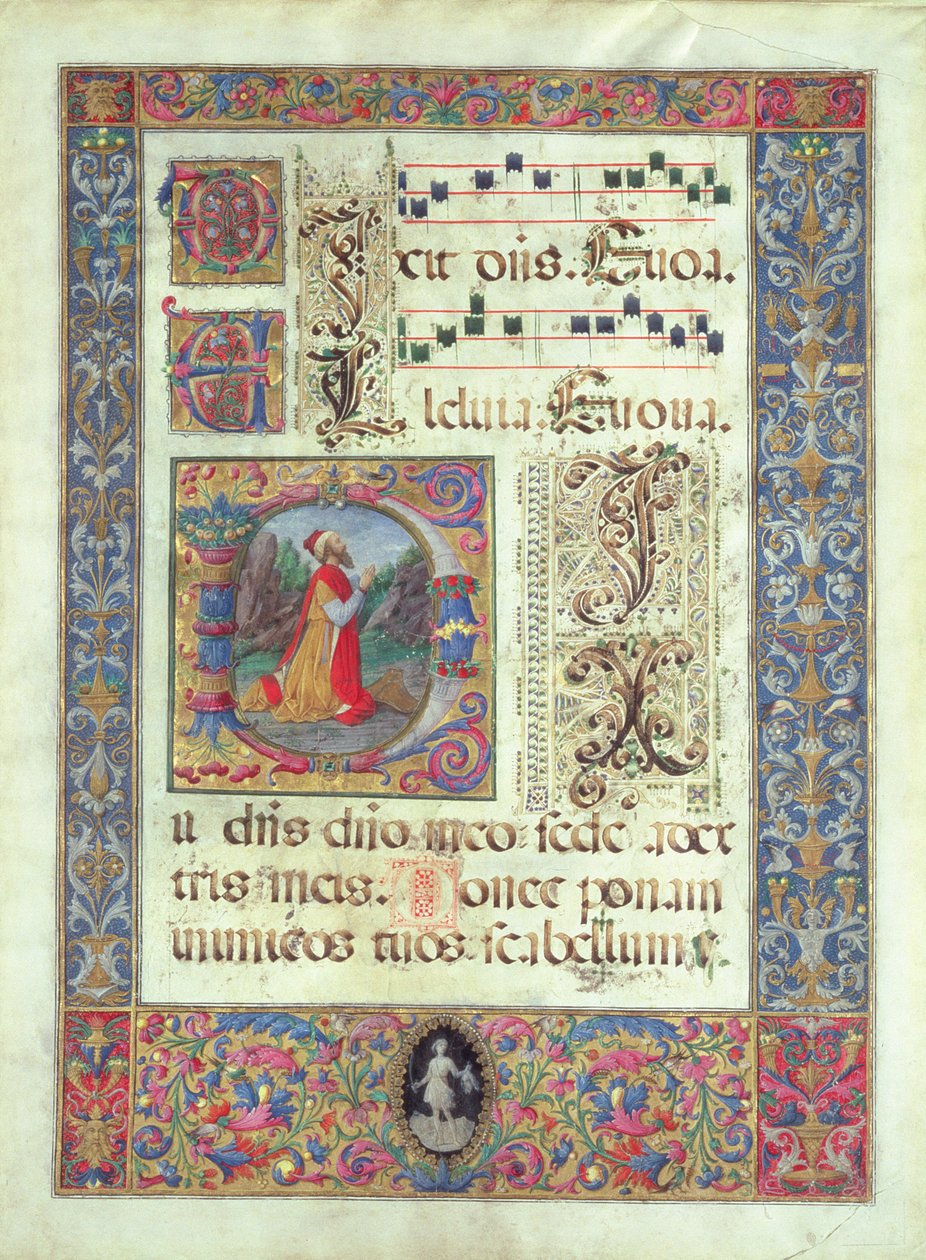 DIxit dñs. Euoa.
ALleluia: Euoua.
DIX
it dñs dño meo: sede a dex
tris meis. Donec ponam
inimicos tuos: scabellum